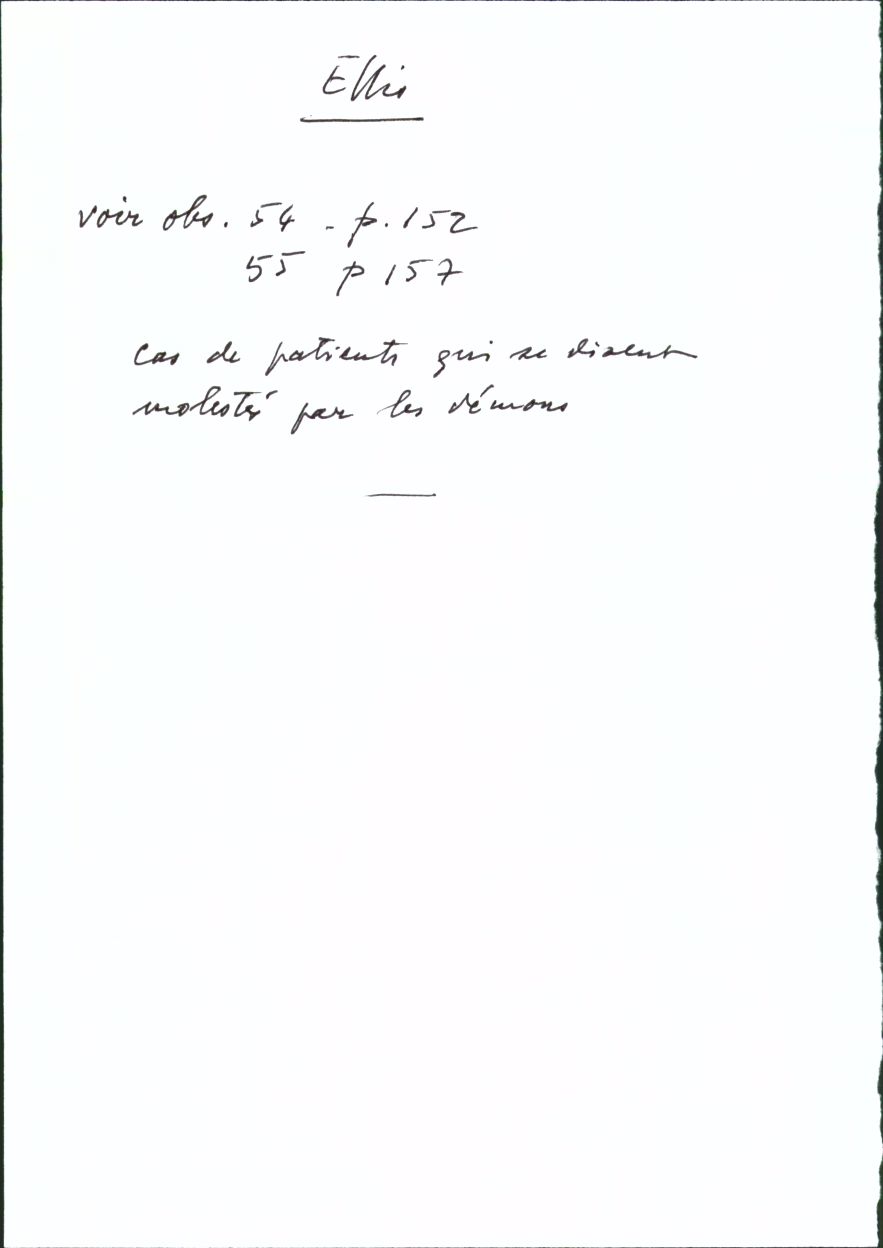 Ellis
voir obs. 54 - p. 152
55 p 157
cas de patients qui se disent
molestés par les démons